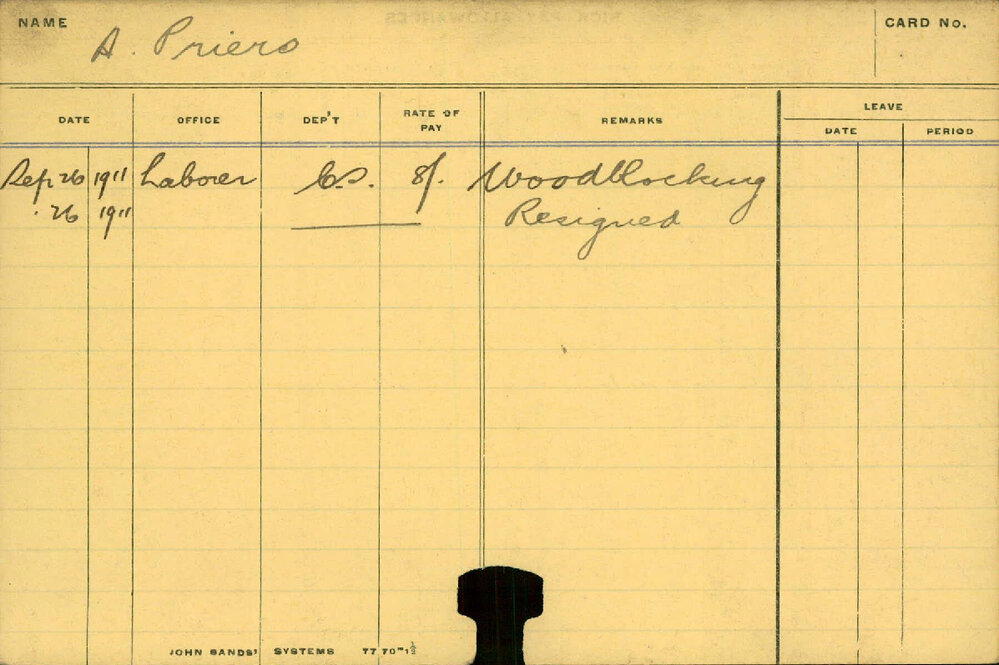 NAME A. Priero CARD No.
DATE OFFICE DEP'T RATE OF PAY REMARKS LEAVE
DATE PERIOD
Sep 26 1911 Laborer C.S. 8/. Woodblocking
. 26 1911 Resigned
JOHN SANDS' SYSTEMS 77 70